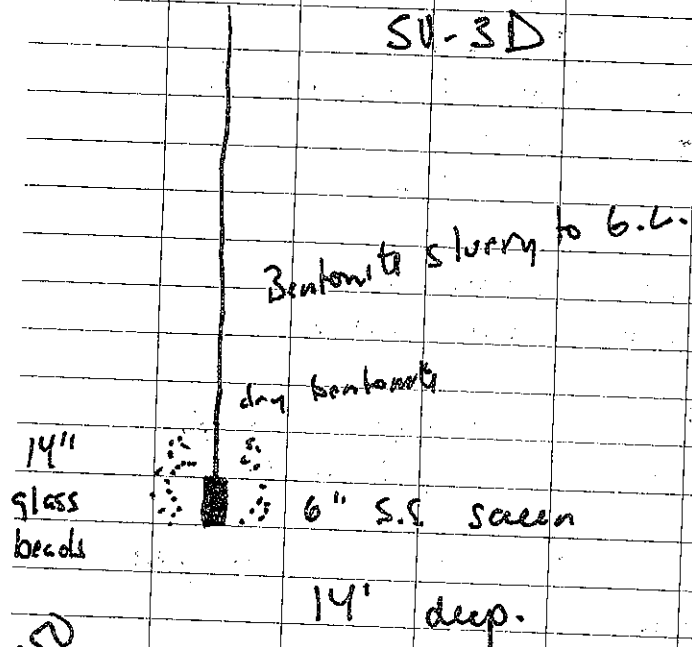 SV-3D
Bentonite slurry to G.L.
dry bentonite
14"
glass
beads
6" S.S screen
14' deep.